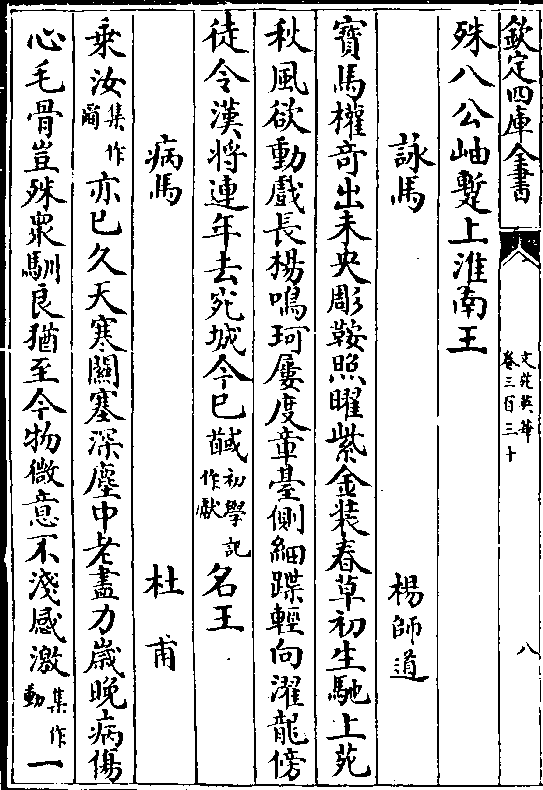 欽定四庫全書
文苑英華
卷三百三十
八
殊八公岫蹔上淮南王
詠馬 楊師道
寶馬權竒出未央彫鞍照曜紫金装春草初生馳上苑
秋風欲動戲長楊鳴珂屢度章臺側細蹀輕向濯龍傍
徒令漢將連年去宛城今已馘初學記作獻名王
病馬 杜甫
乗汝集作爾亦已久天寒關塞深塵中老盡力嵗晚病傷
心毛骨豈殊衆馴良猶至今物微意不淺感激集作動一